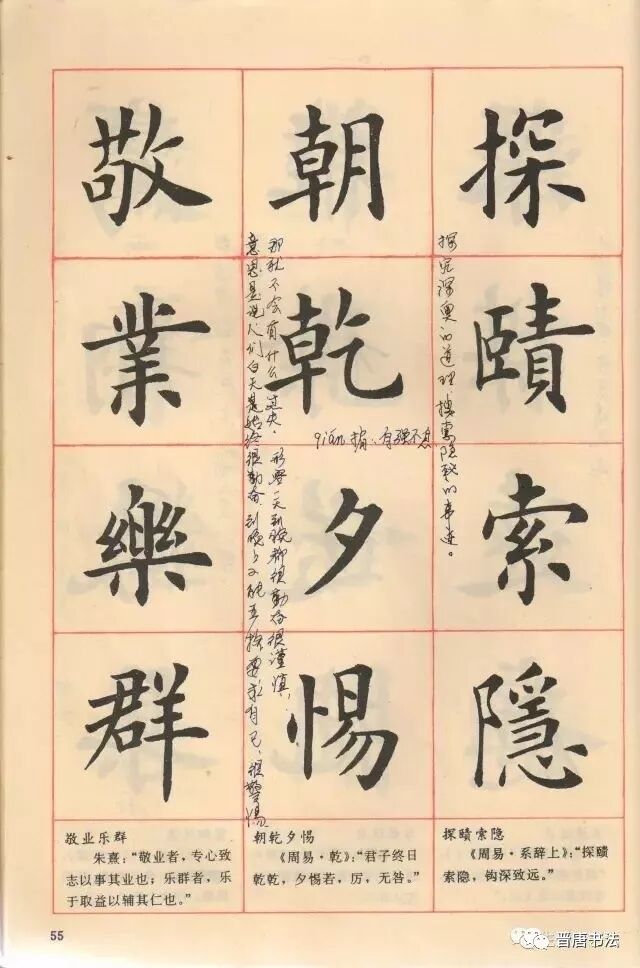 探赜索隐
朝乾夕惕
敬業樂群
探究深奥的道理 搜索隐秘的事迹。
qián 指:自强不息
形容一天到晚都很勤奋很谨慎,
那就不会有什么过失.
意思是说人们白天是始终很勤奋
探赜索隐
《周易·系辞上》:“探赜
索隐,钩深致远。”
朝乾夕惕
《周易·乾》:“君子终日
乾乾,夕惕若,厉,无咎。”
敬业乐群
朱熹:“敬业者,专心致
志以事其业也;乐群者,乐
于取益以辅其仁也。”
55
晋唐书法